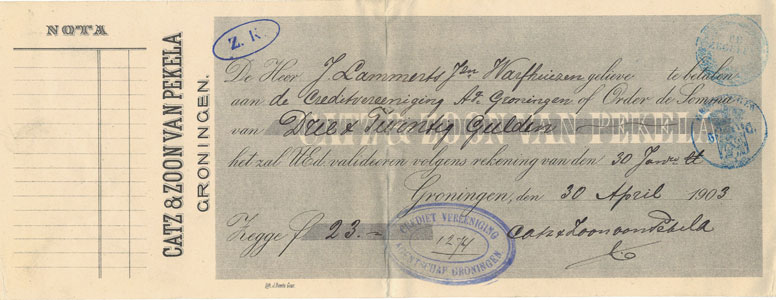 NOTA
CATZ & ZOON VAN PEKELA
GRONINGEN.
Z. K.
De Heer J. Lammerts Jzn Warfhuizen gelieve te betalen
aan de Credietvereeniging Ag. Groningen of Order de Somma
van Drie & Twintig Gulden
CATZ & ZOON VAN PEKELA
het zal UEd. valideeren volgens rekening van den 30 Janri ll
Groningen, den 30 April 1903
Zegge f 23.-
CREDIET VEREENIGING
1274
AGENTSCHAP GRONINGEN
Catz & Zoon van Pekela